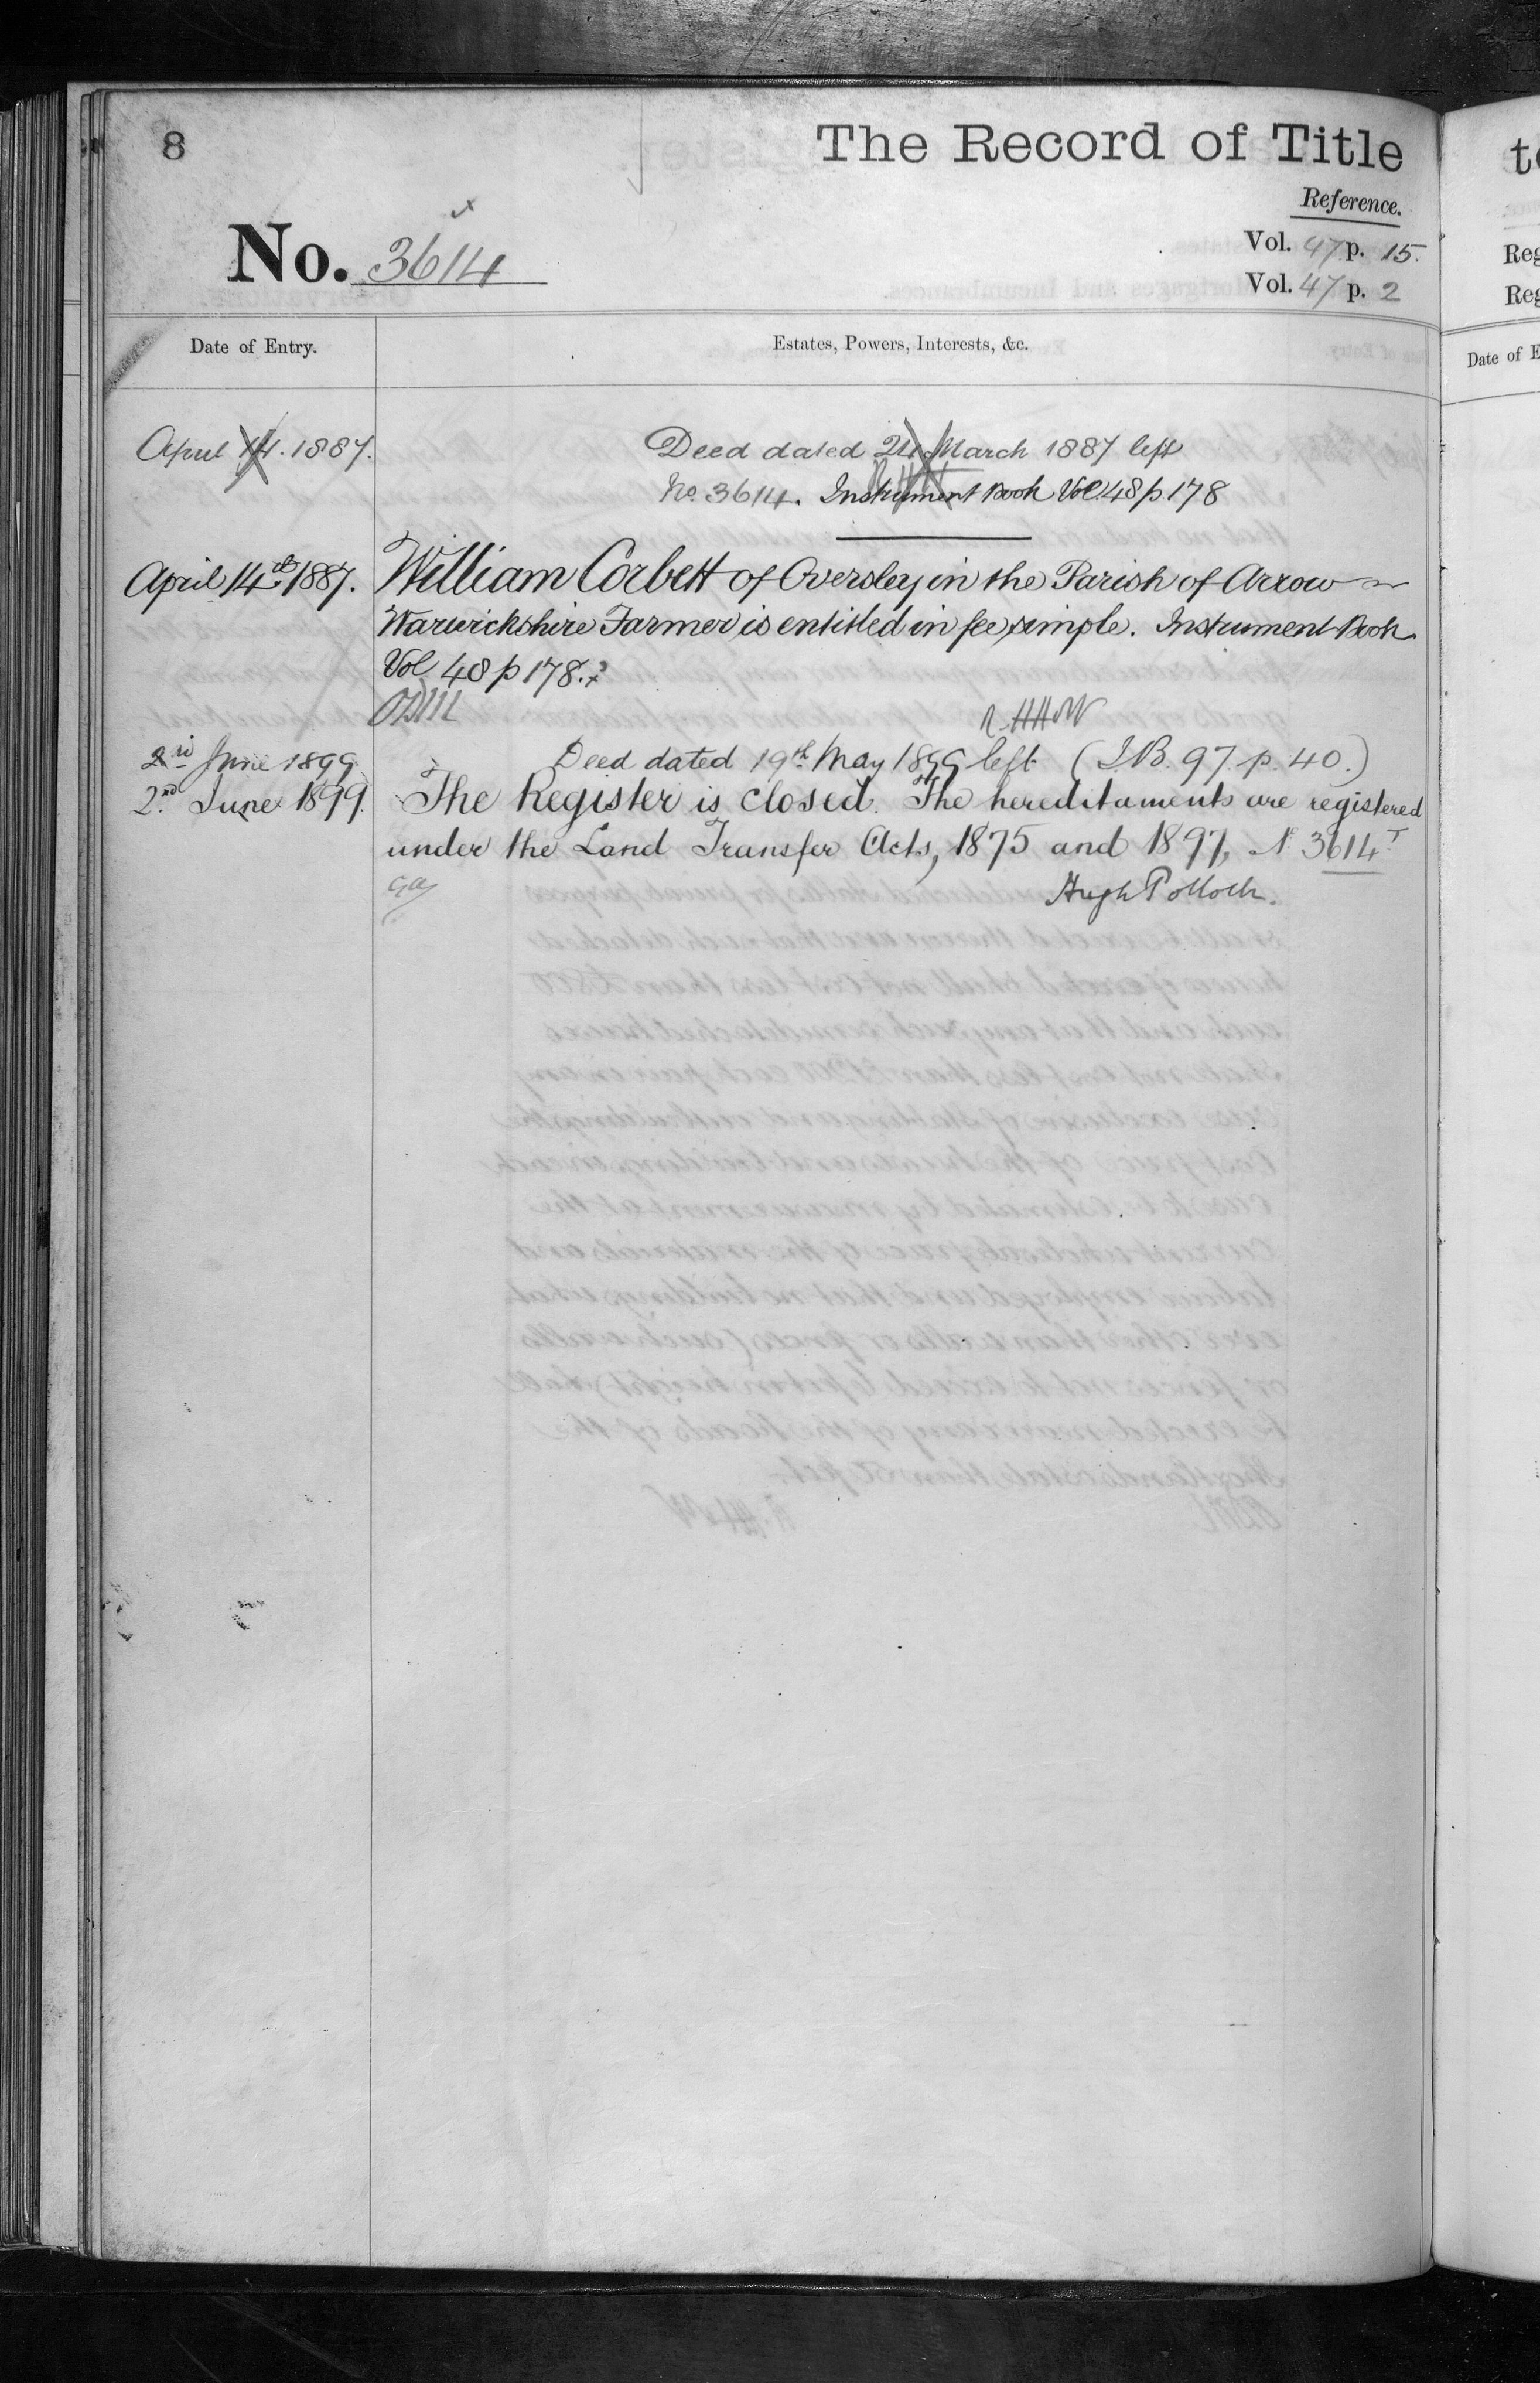 8
The Record of Title
Reference.
No. 3614
Vol. 47 p. 15.
Vol. 47 p. 2
Date of Entry.
Estates, Powers, Interests, &c.
April 14. 1887.
Deed dated 24 March 1887 left
No. 3614. Instrument Book Vol. 48 p. 178
April 14th 1887.
William Corbett of Oversley in the Parish of Arrow
Warwickshire Farmer is entitled in fee simple. Instrument Book
Vol 48 p 178.
2nd June 1899.
Deed dated 19th May 1899 left (I.B. 97. p. 40.)
2nd June 1899.
The Register is closed. The hereditaments are registered
under the Land Transfer Acts, 1875 and 1897, N. 3614T
Hugh Pollock.
Reg
Reg
Date of E